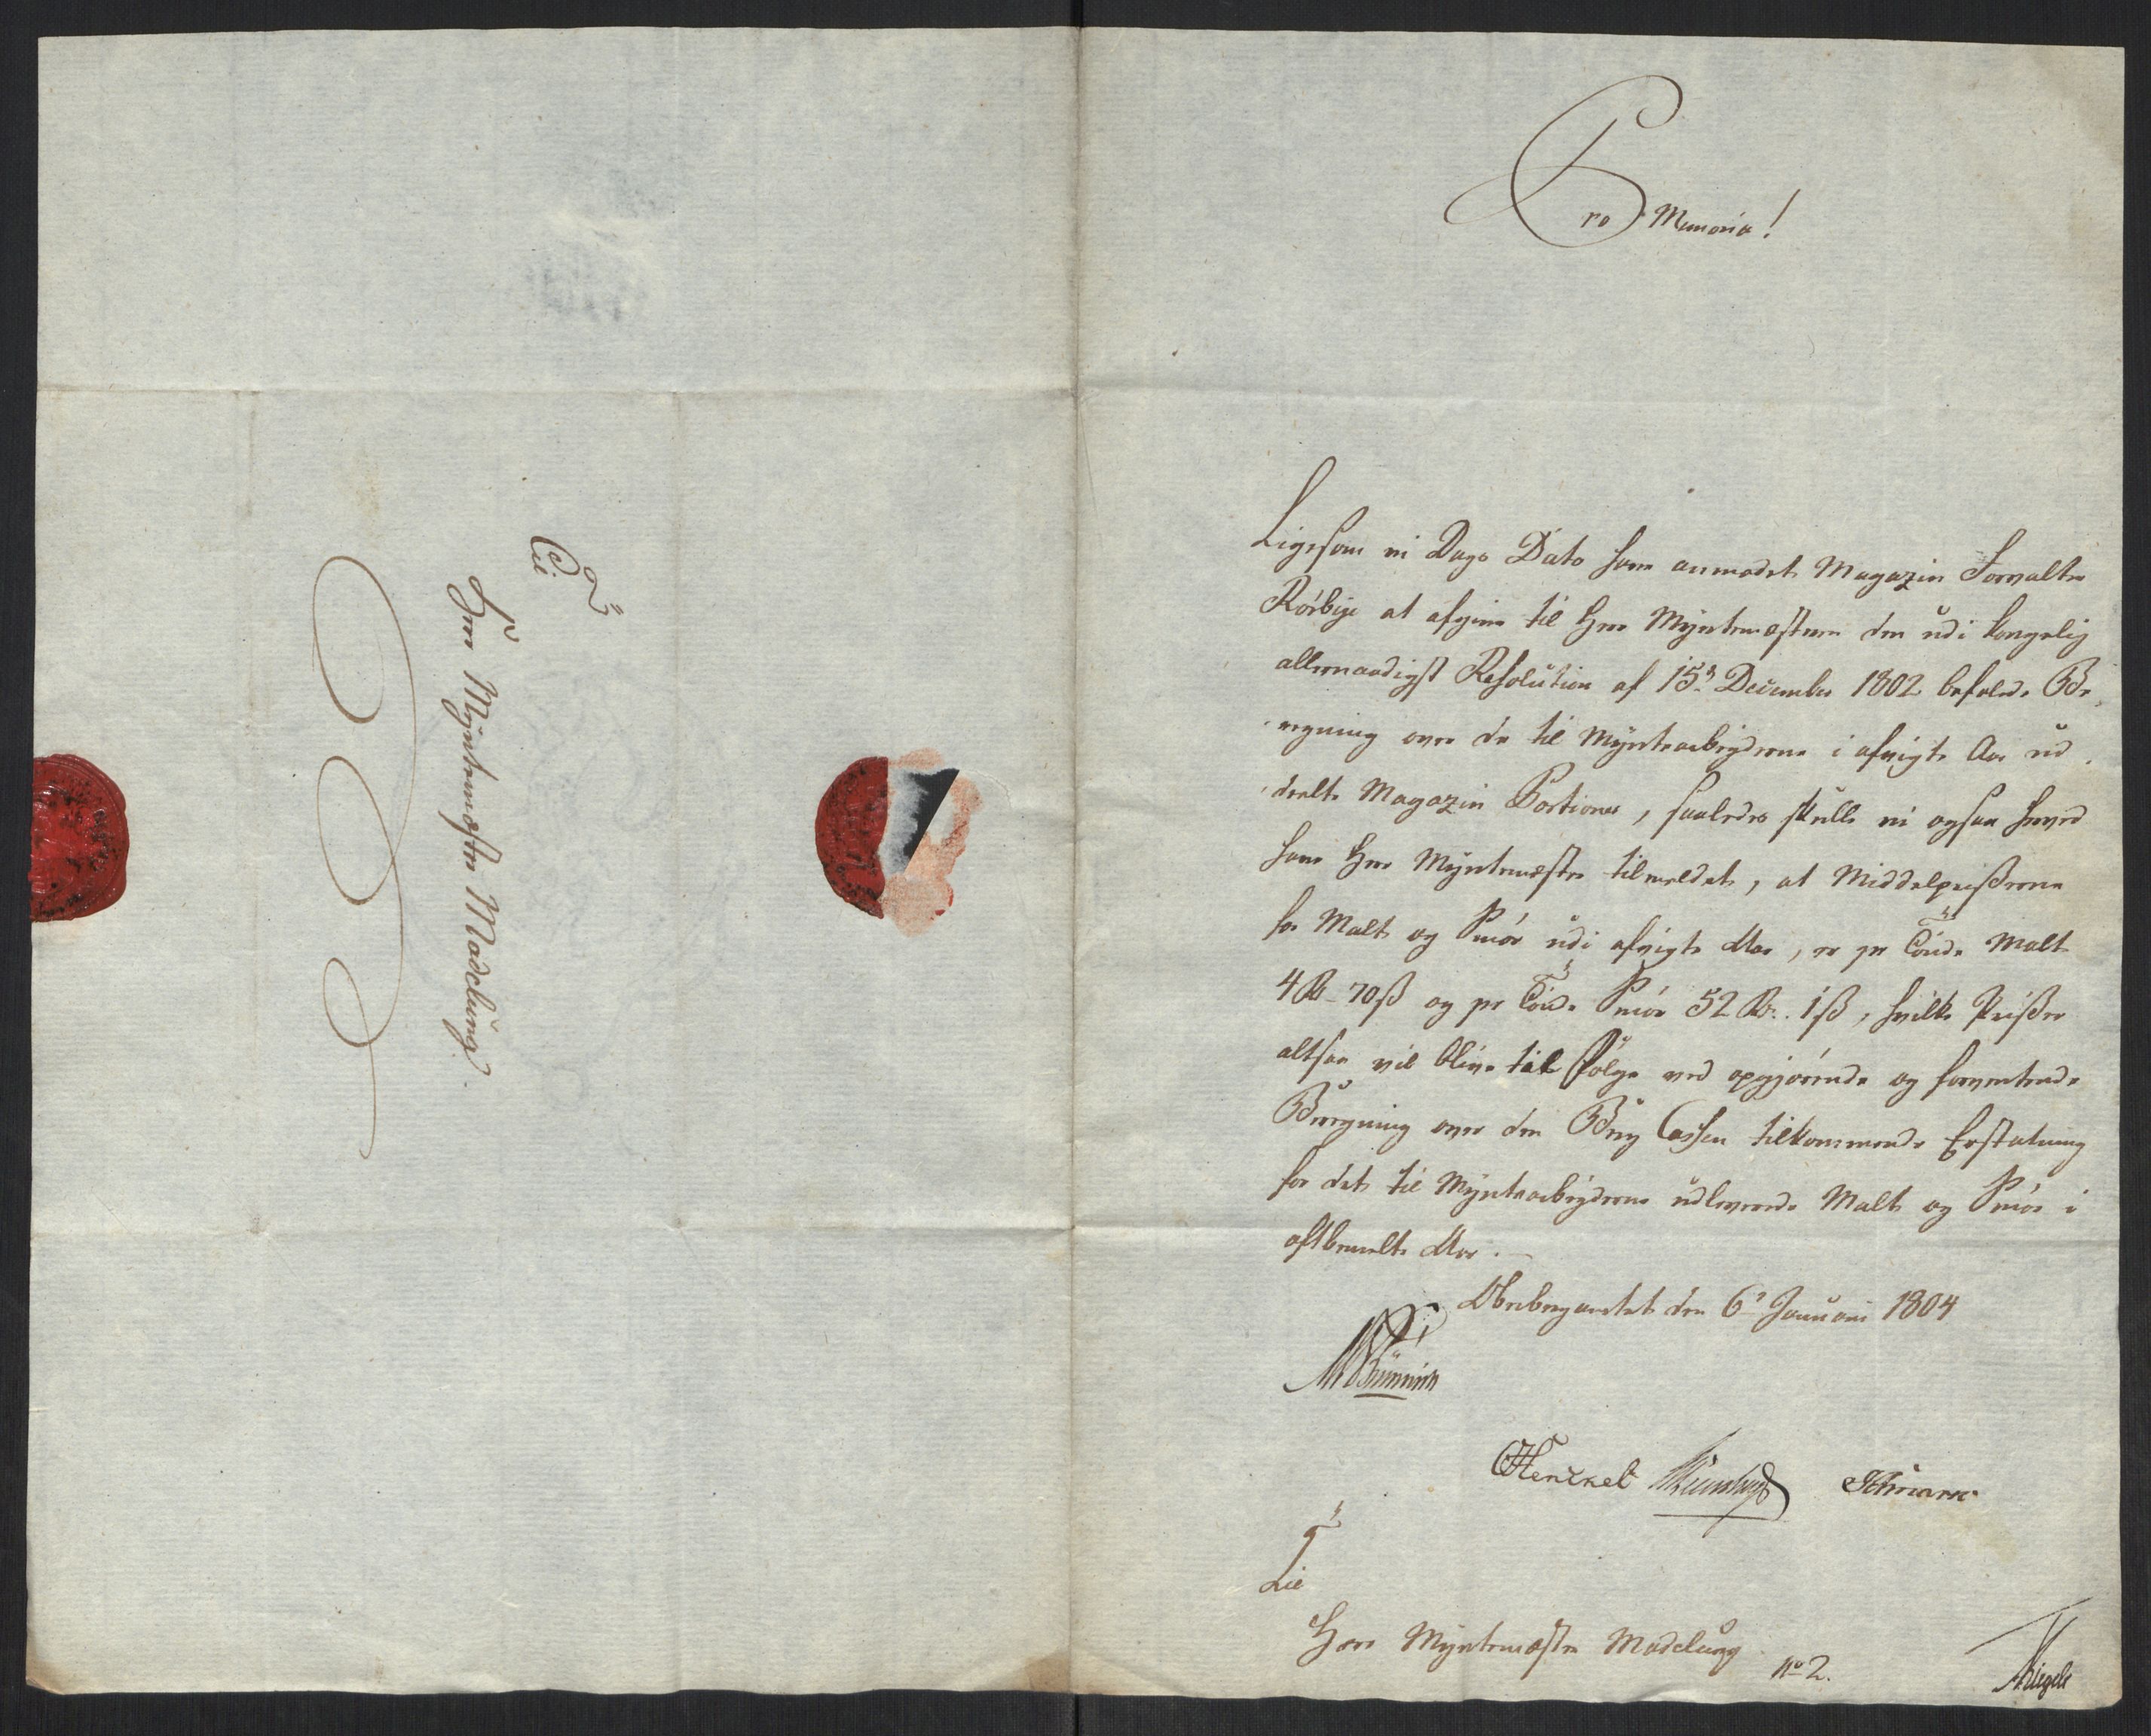 Til
Herr Myntemester Madelung.
Pro Memoria!
Ligesom vi Dags Dato have anmodet Magazin Forvalter
Rörbye at afgive til Herr Myntemesteren den udi kongelig
allernaadigst Resolution af 15de December 1802 befalede Be-
regning over de til Myntearbeyderne i afvigte Aar ud-
deelte Magazin Portioner, saaledes skulle vi ogsaa herved
have Herr Myntemester tilmeldet, at Middelprisserne
for Malt og Smör udi afvigte Aar, er pr Tönde Malt
4 Rd 70 ß og pr Tönde Smör 52 Rd. 1 ß, hvilke Prisser
altsaa vil blive til Fölge ved opgjörende og forventende
Beregning over den Berg Cassen tilkommende Erstatning
for det til Myntearbeyderne udleverede Malt og Smör i
oftbemelte Aar.
Oberbergamtet den 6te Januari 1804
Brünnich
Henckel
Til
Herr Myntemester Madelung
No 2.